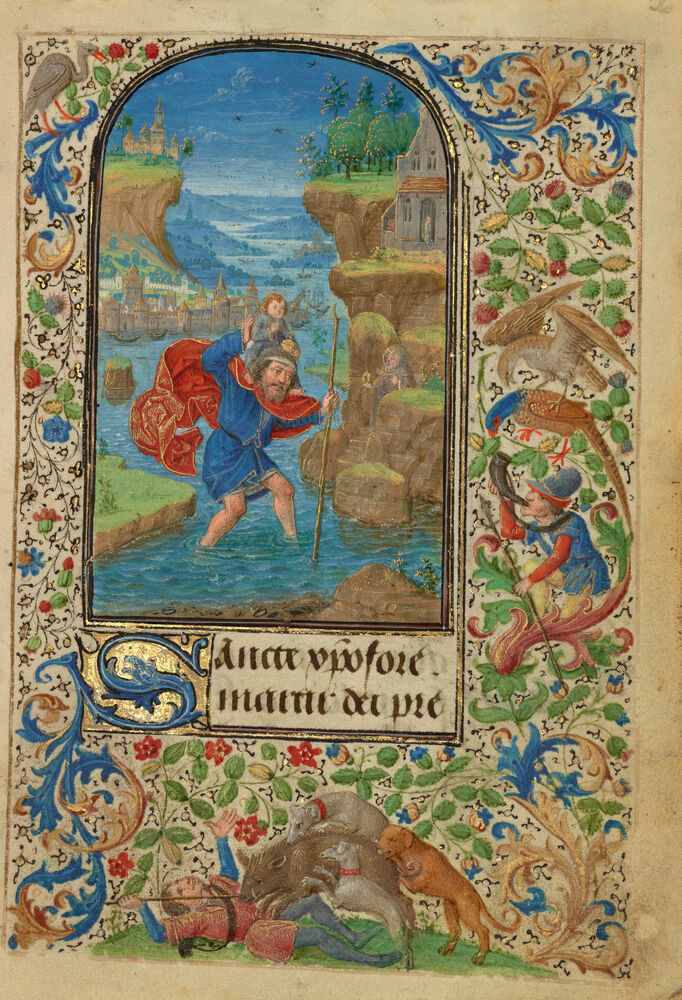 Sancte xpofore.
martir dei pre